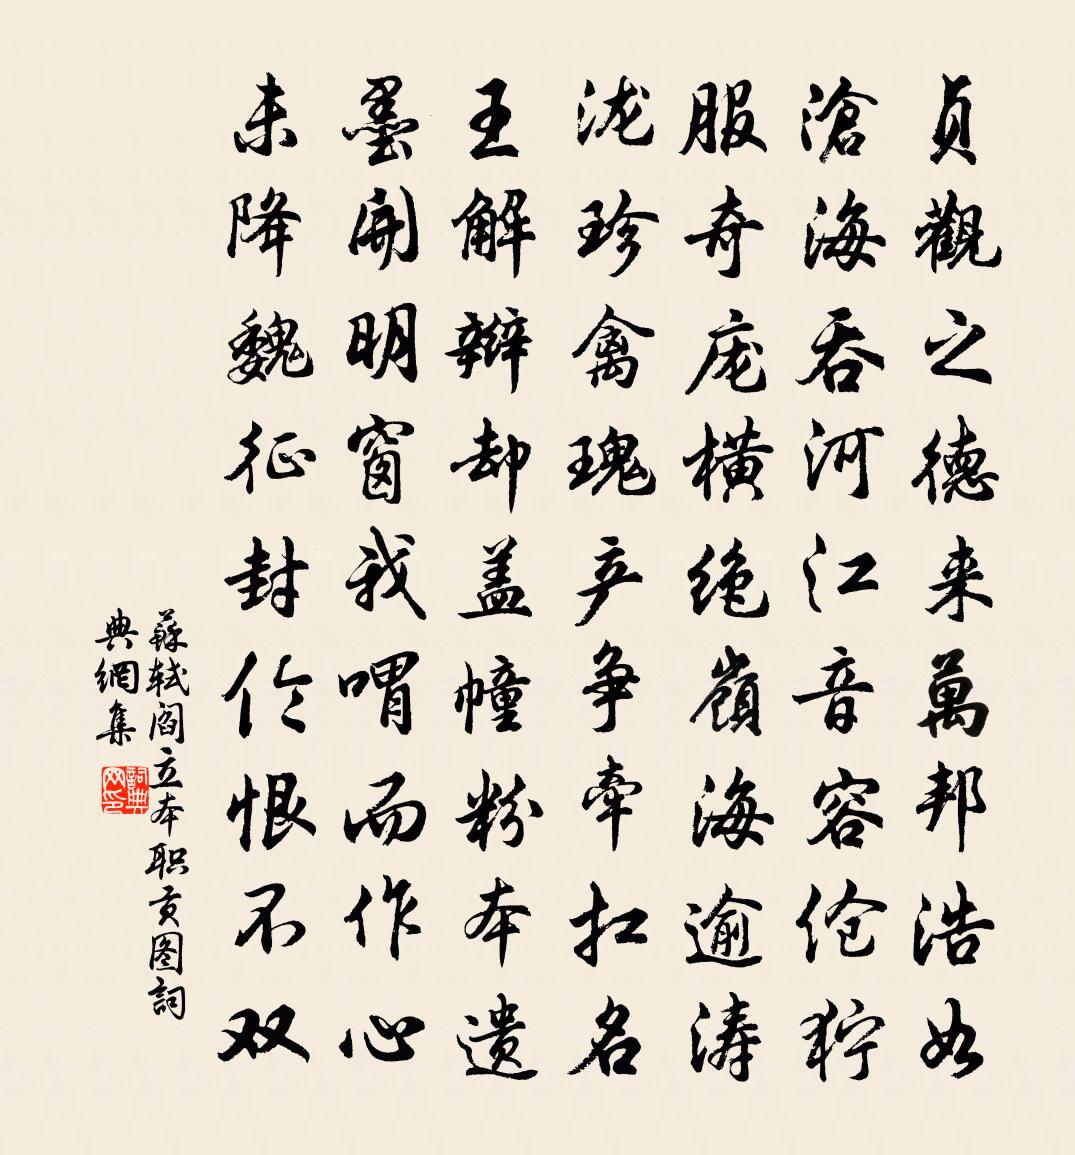 貞觀之德来萬邦浩如
滄海吞河江音容伧狞
服奇庞横绝嶺海逾涛
泷珍禽瑰产争牵扛名
王解辮却盖幢粉本遗
墨開明窗我喟而作心
未降魏征封伦恨不双
蘇轼阎立本职贡图詞
典網集
詞典
网印